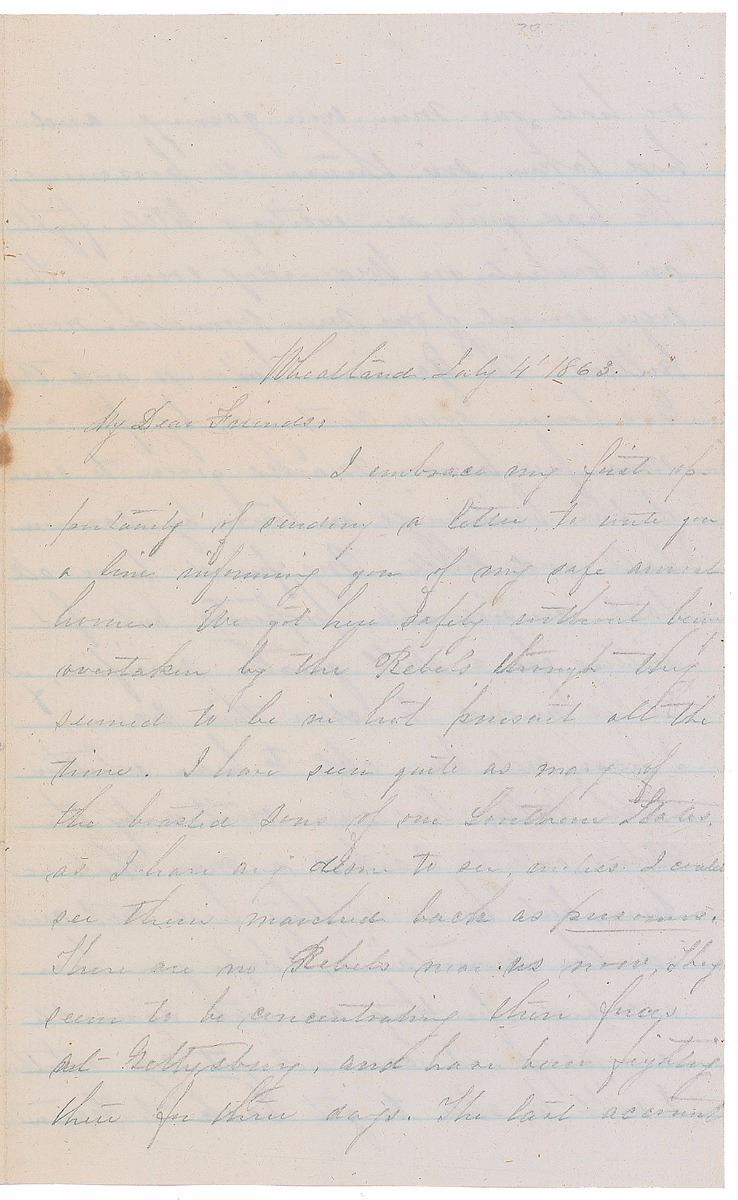 Wheatland, July 4' 1863.
My Dear Friends,
I embrace my first op-
portunity of sending a letter, to write you
a line informing you of my safe arrival
home. We got here safely without being
overtaken by the Rebels though they
seemed to be in hot pursuit all the
time. I have seen quite as many of
the boasted sons of our Southern States,
as I have any desire to see, unless I could
see them marched back as prisoners.
There are no Rebels near us now, They
seem to be concentrating their forces
at Gettysburg, and have been fighting
there for three days. The last account